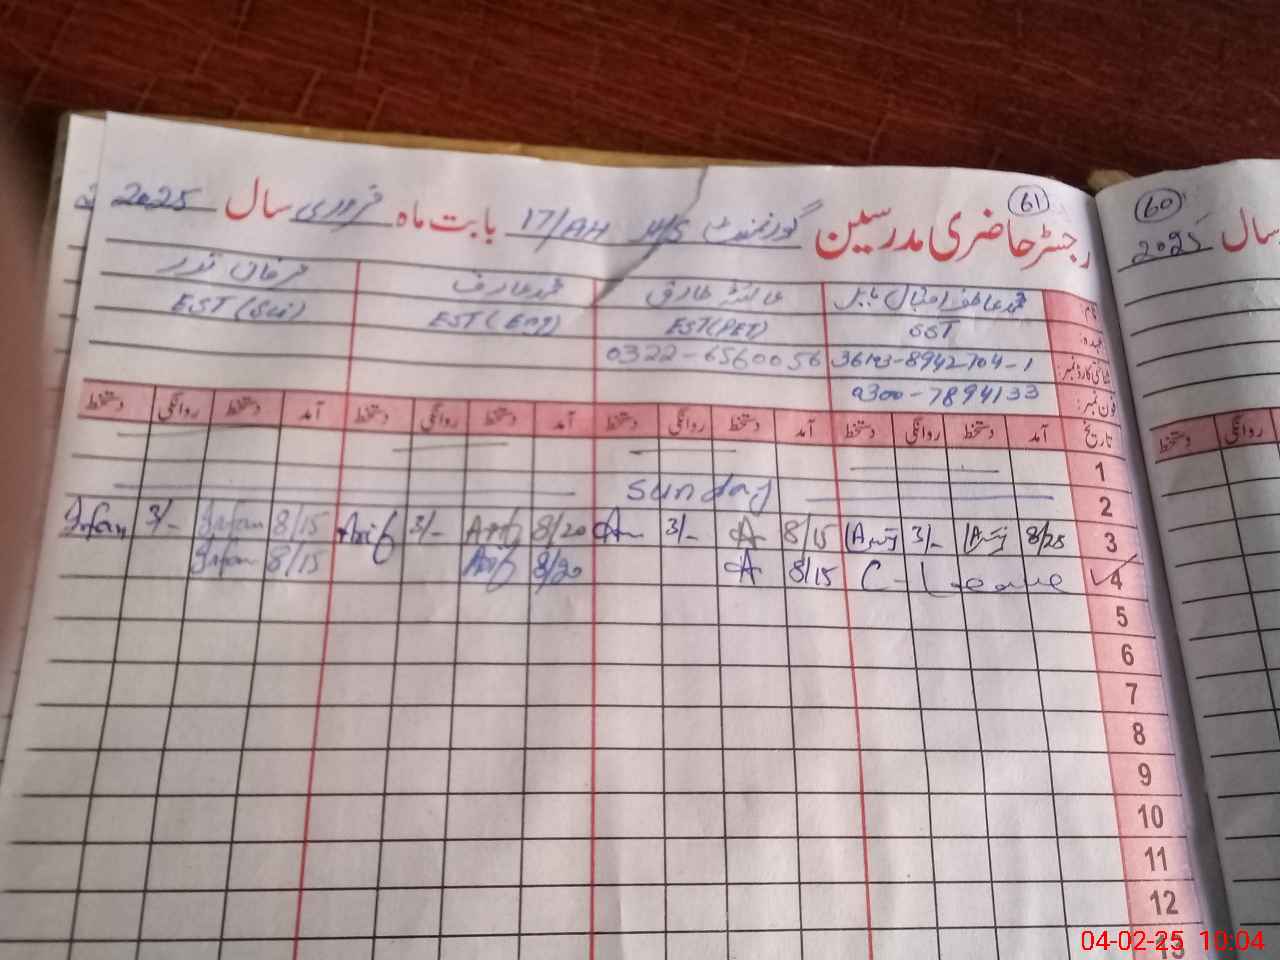 61
رجسٹر حاضری مدرسین گورنمنٹ H/S 17/AH بابت ماہ فروری سال 2025
نام محمد عاطف اقبال عائشہ طارق محمد عارف عرفان
عہدہ: SST EST(PET) EST(Eng) EST(Sci)
شناختی کارڈ نمبر: 36103-8942704-1 0322-6560056
فون نمبر: 0300-7894133
تاریخ آمد دستخط روانگی دستخط آمد دستخط روانگی دستخط آمد دستخط روانگی دستخط آمد دستخط روانگی دستخط
1
2 Sunday
3 8/25 3/- 8/15 A 3/- A 8/20 Arif 3/- Arif 8/15 Irfan 3/- Irfan
4 C-Leave 8/15 A 8/20 Arif 8/15 Irfan
5
6
7
8
9
10
11
12
13
60
سال 2025
روانگی دستخط
04-02-25 10:04